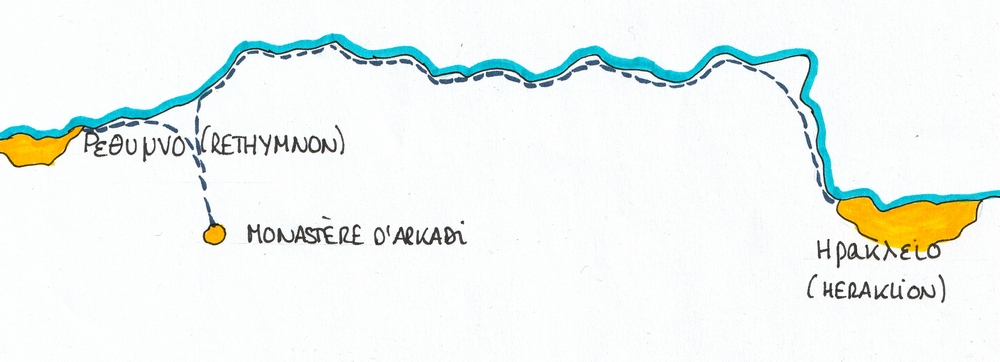 Ρεθυμνο (RETHYMNON)
MONASTÈRE D'ARKADi
Ηρακλειο
(HERAKLiON)